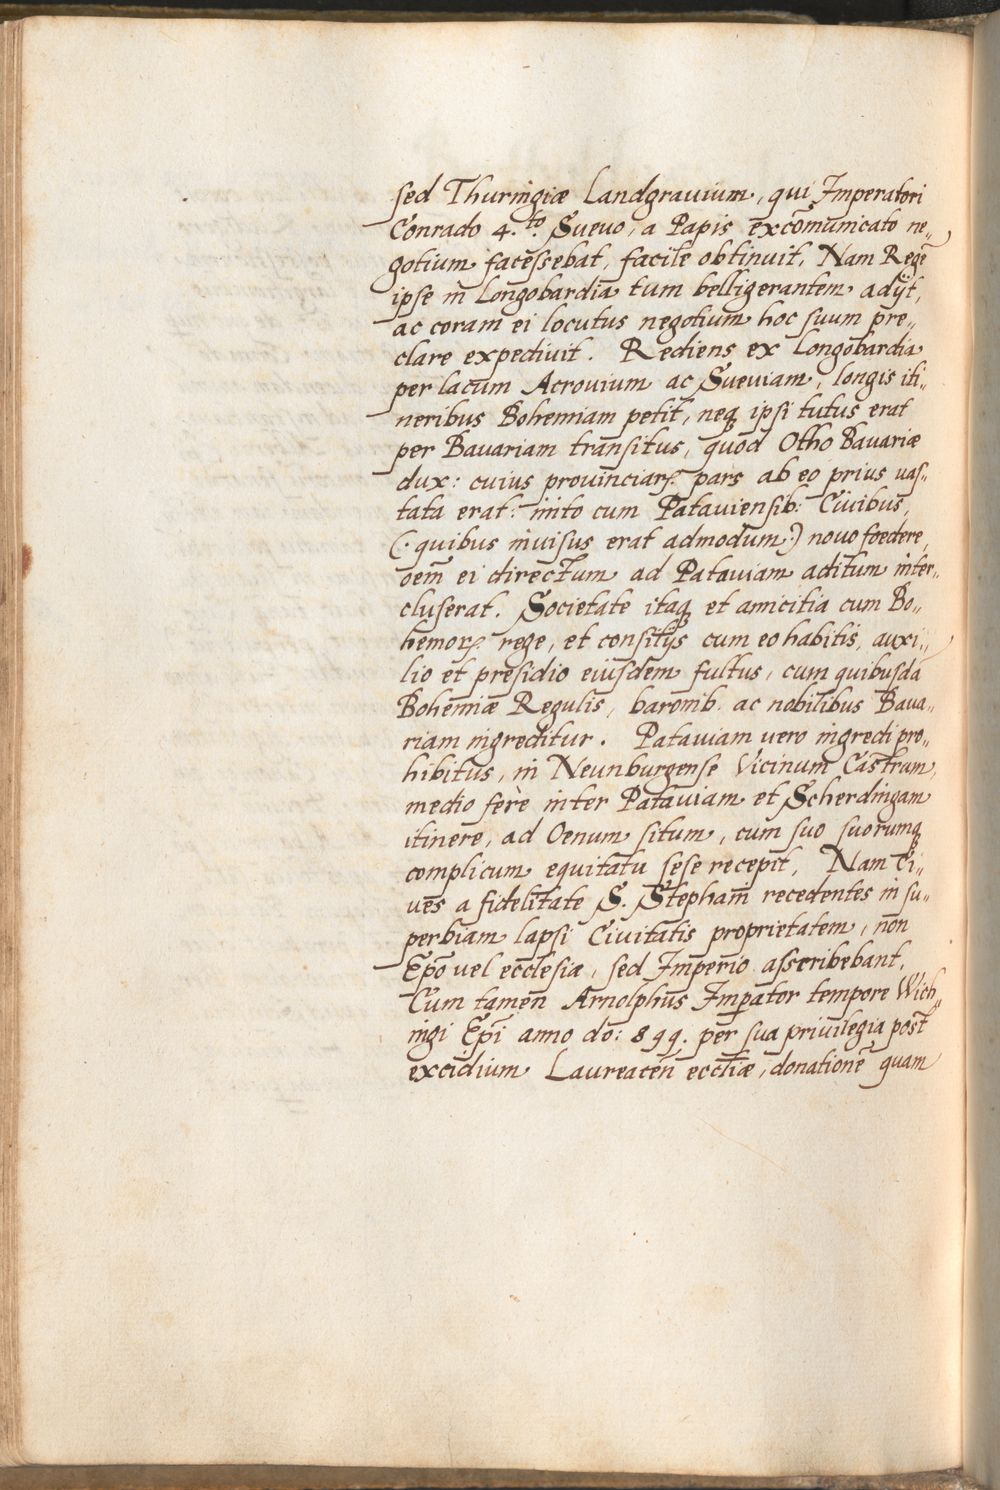 sed Thuringiæ Landgrauium, qui Imperatori
Conrado 4.to Sueuo, a Papis excōmunicato ne„
gotium facessebat, facile obtinuit, Nam Regē
ipse in Longobardia tum belligerantem adijt,
ac coram ei locutus negotium hoc suum pre„
clare expediuit. Rediens ex Longobardia
per lacum Acrouium ac Sueuiam, longis iti„
neribus Bohemiam petit, neq; ipsi tutus erat
per Bauariam transitus, quod Otho Bauariæ
dux: cuius prouinciarꝝ pars ab eo prius uas„
tata erat: inito cum Patauiensib: Ciuibus,
(: quibus inuisus erat admodum:) nouo foedere,
oem̄ ei directum ad Patauiam aditum inter„
cluserat. Societate itaq; et amicitia cum Bo„
hemorꝝ rege, et consilijs cum eo habitis, auxi„
lio et presidio eiusdem fultus, cum quibusdā
Bohemiæ Regulis, baronib. ac nobilibus Baua„
riam ingreditur. Patauiam uero ingredi pro„
hibitus, in Neunburgense Vicinum Castrum,
medio ferè inter Patauiam et Scherdingam
itinere, ad Oenum situm, cum suo suorumq;
complicum equitatu sese recepit, Nam Ci„
ues a fidelitate S. Stephani recedentes in su„
perbiam lapsi Ciuitatis proprietatem, non
Ep̄o uel ecclesiæ, sed Imperio asscribebant,
Cum tamen Arnolphus Imp̄ator tempore Wich„
ingi Ep̄i anno do: 899. per sua priuilegia post
excidium Laureaceñ eccl̄iæ, donationē quam